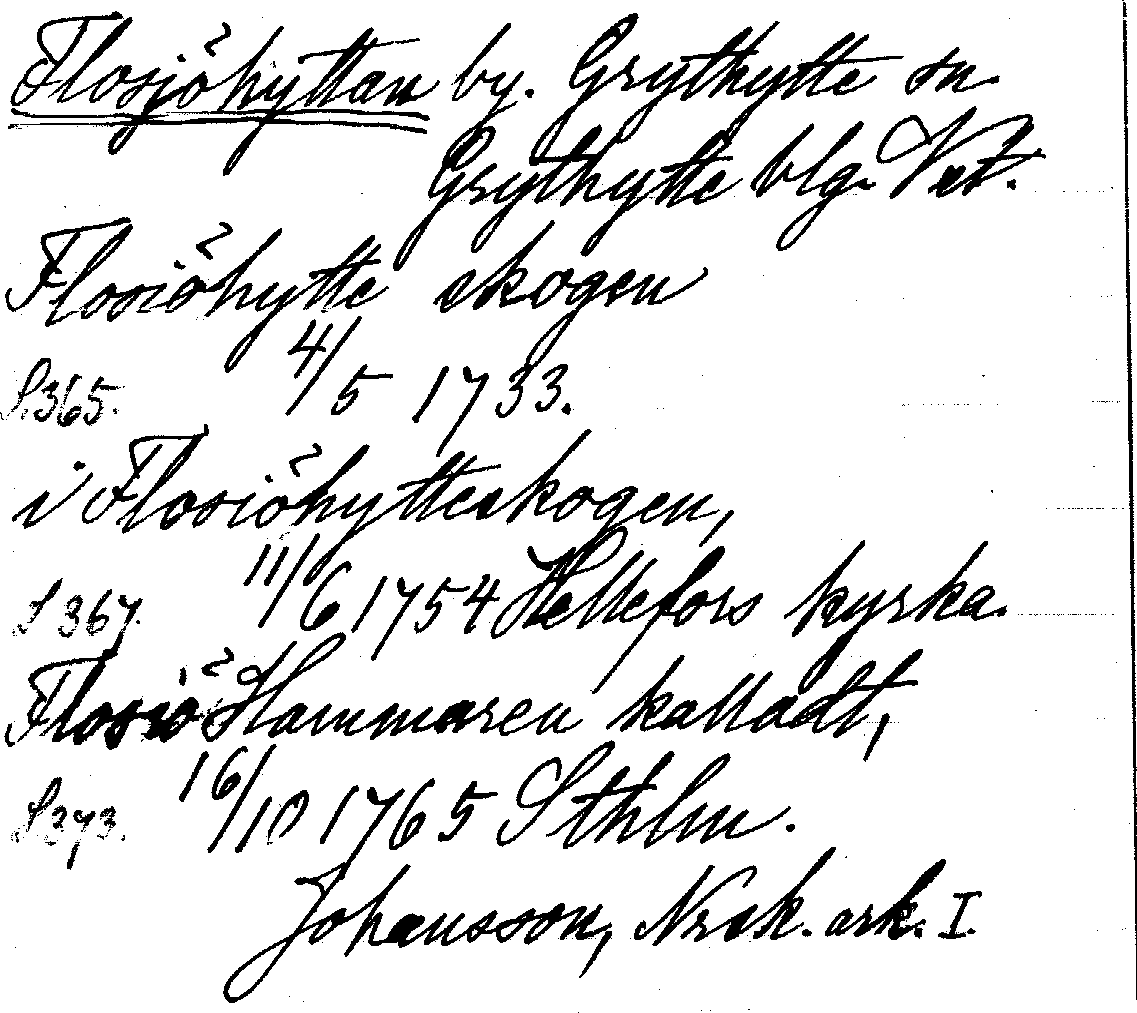 Flosjöhyttan by. Grythytte sn
Grythytte blg. Vst.
Flosiöhytte skogen
S. 365. 4/5 1733.
i Flosiöhytteskogen,
S 367. 11/6 1754 Hellefors kyrka.
Flosiö Hammaren kalladt,
S. 373. 16/10 1765 Sthlm.
Johansson, Nrsk. ark. I.